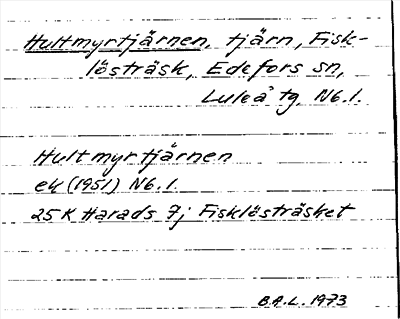 Hultmyrtjärnen, tjärn, Fisk-
lösträsk, Edefors sn,
Luleå tg. Nb. l.
Hultmyrtjärnen
ek (1951) Nb. l.
25K Harads 7j Fisklösträsket
B.A.L. 1973